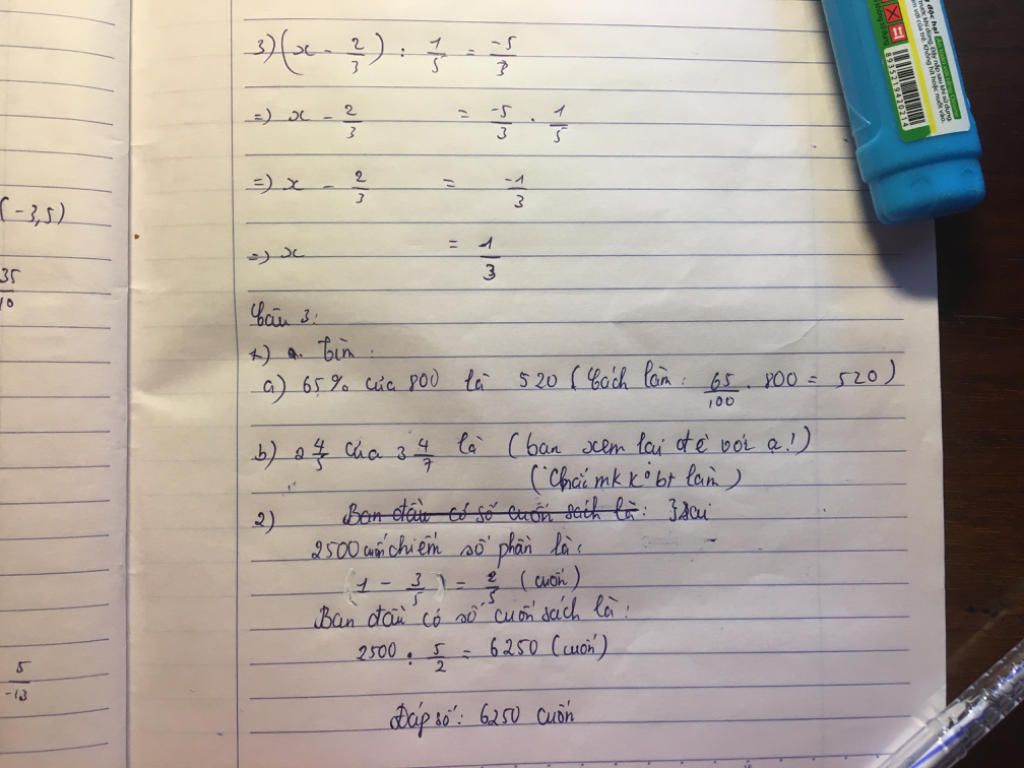 3) (x - 2/3) : 1/5 = -5/3
=) x - 2/3 = -5/3 . 1/5
=) x - 2/3 = -1/3
=) x = 1/3
Câu 3:
1) a. Tìm:
a) 65% của 800 là 520 (Cách làm: 65/100 . 800 = 520)
b) 2 4/5 của 3 4/7 là (bạn xem lại đề với ạ!)
(Chắc mk k° bt làm)
2) Ban đầu có số cuốn sách là: } sai
2500 cuốn chiếm số phần là:
(1 - 3/5) = 2/5 (cuốn)
Ban đầu có số cuốn sách là:
2500 : 5/2 = 6250 (cuốn)
Đáp số: 6250 cuốn
(-3,5)
35/10
5/-13
8935219420214